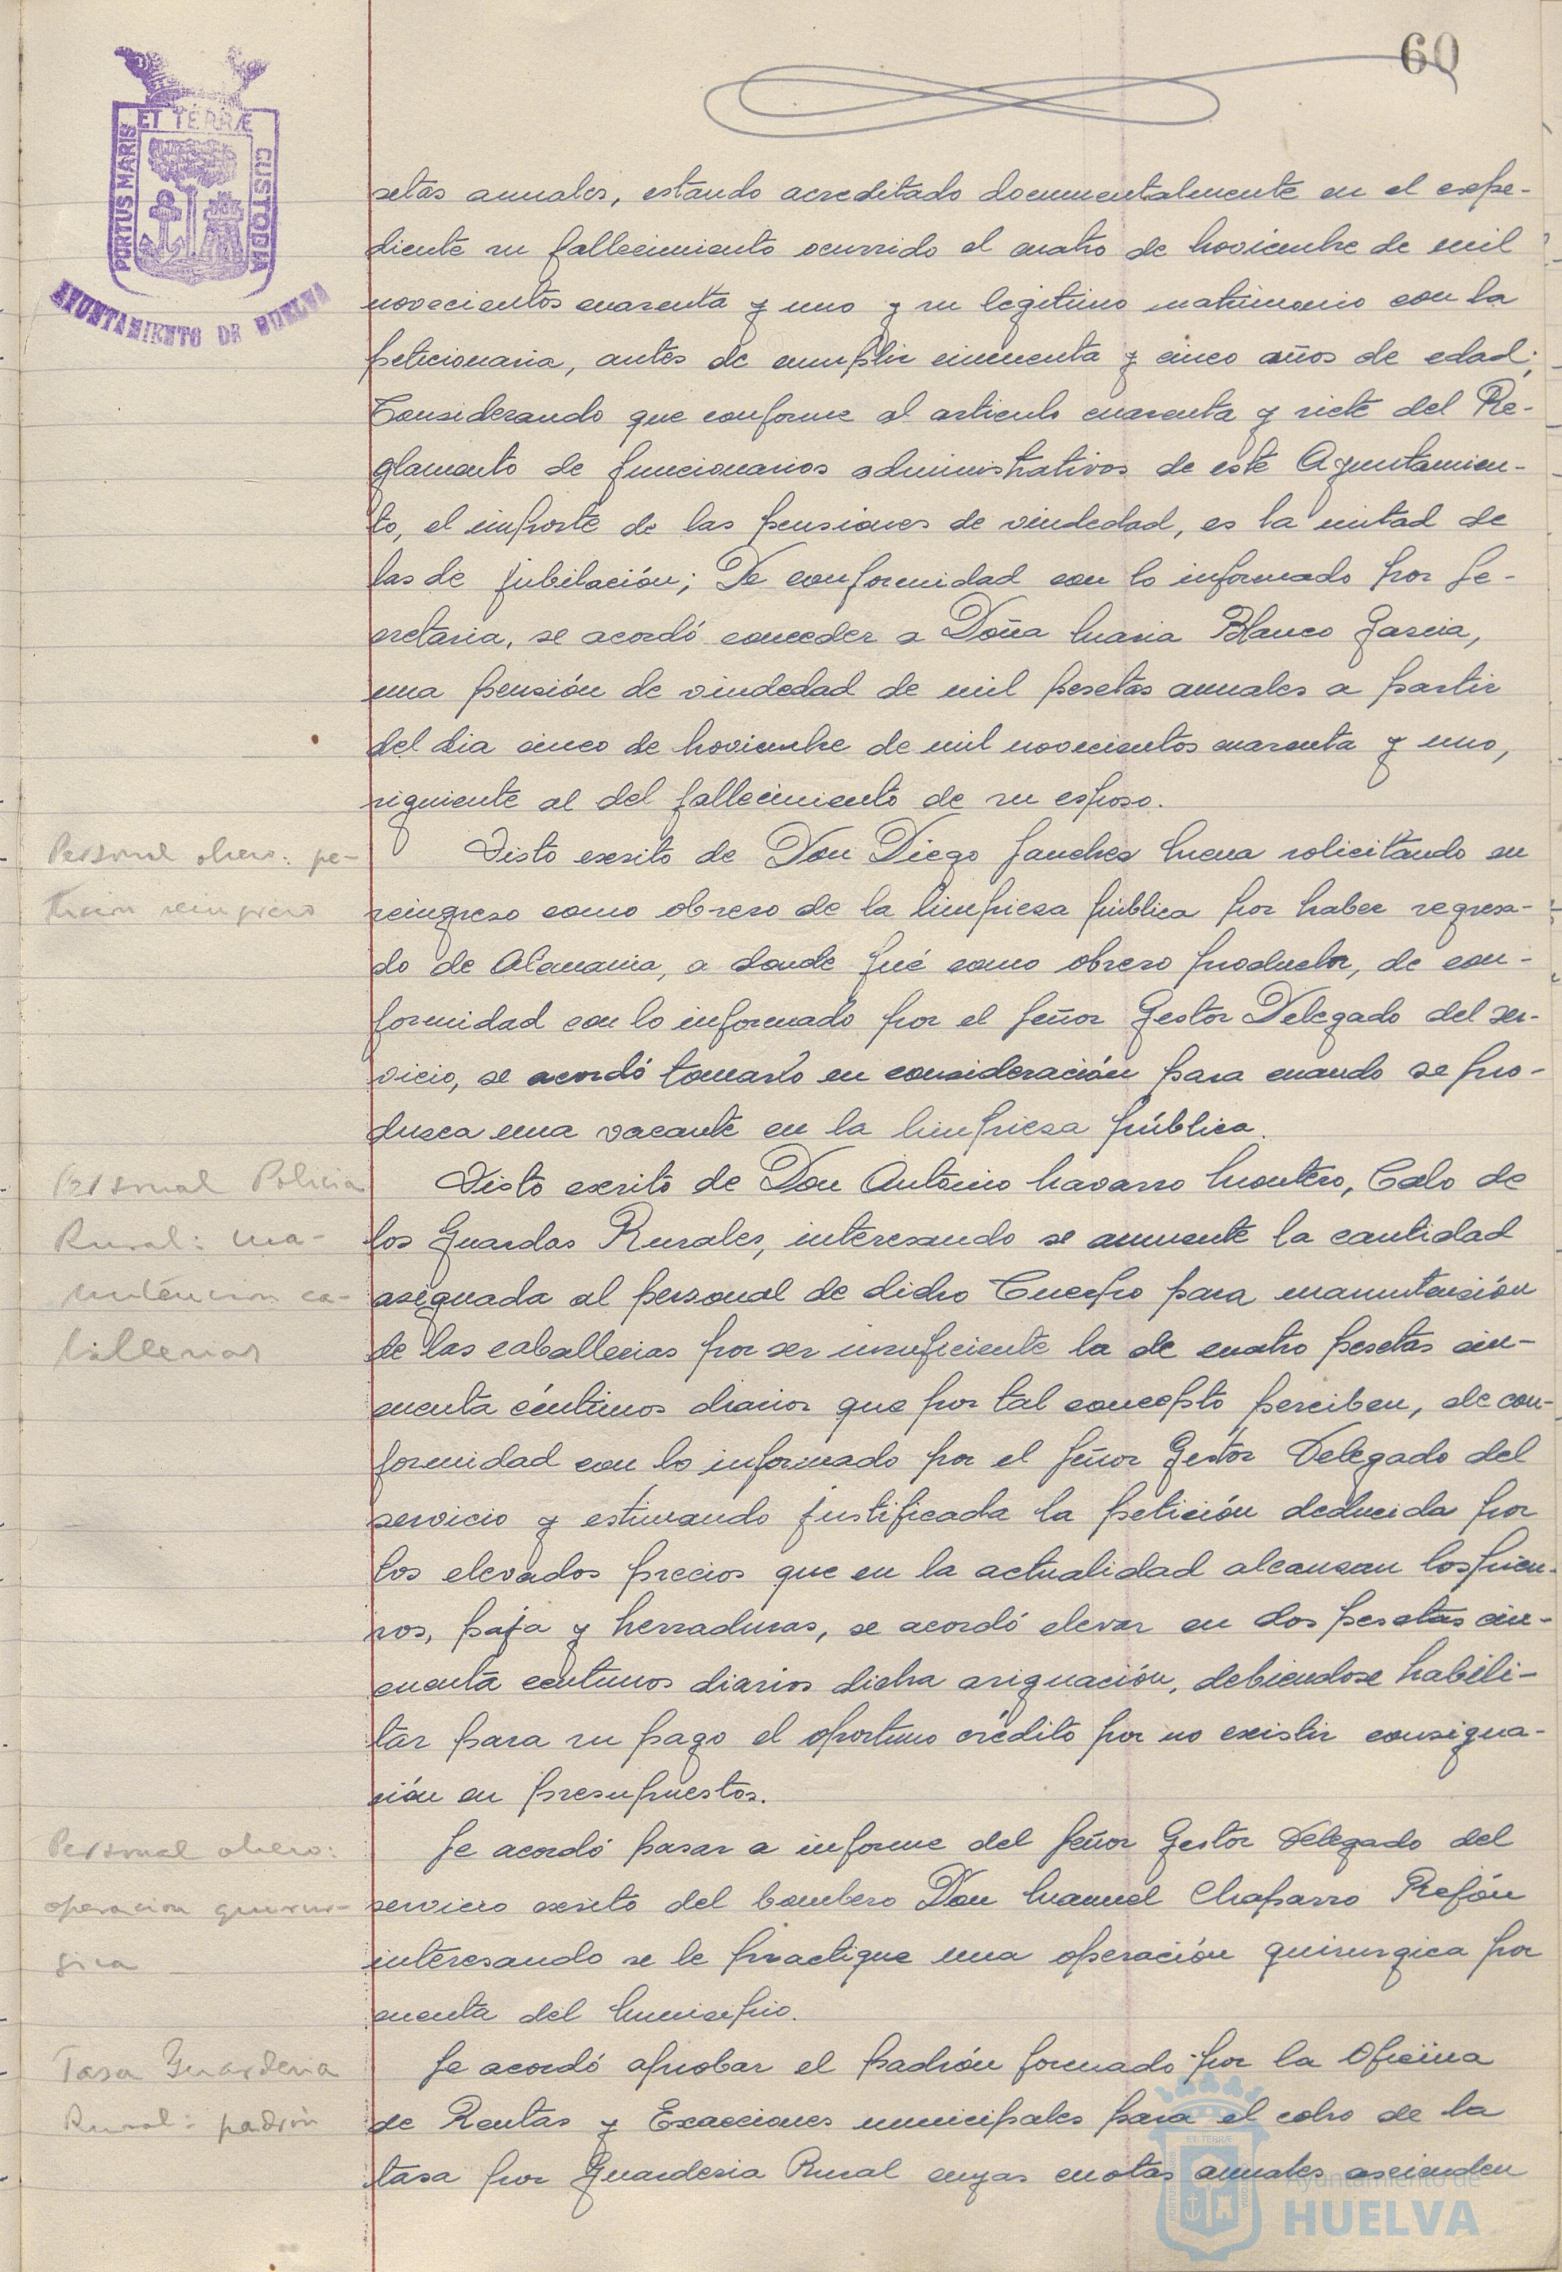 60
ET TERRÆ
PORTUS MARIS
CUSTODIA
AYUNTAMIENTO DE HUELVA
setas anuales, estando acreditado documentalmente en el expe-
diente su fallecimiento ocurrido el cuatro de Noviembre de mil
novecientos cuarenta y uno y su legitimo matrimonio con la
peticionaria, antes de cumplir cincuenta y cinco años de edad;
Considerando que conforme al articulo cuarenta y siete del Re-
glamento de funcionarios administrativos de este Ayuntamien-
to, el importe de las pensiones de viudedad, es la mitad de
las de jubilación; De conformidad con lo informado por Se-
cretaria, se acordó conceder a Doña Maria Blanco Garcia,
una pensión de viudedad de mil pesetas anuales a partir
del dia cinco de Noviembre de mil novecientos cuarenta y uno,
siguiente al del fallecimiento de su esposo.
Personal obrero: pe-
tición reingreso
Visto escrito de Don Diego Sanchez Mena solicitando su
reingreso como obrero de la limpieza pública por haber regresa-
do de Alemania, a donde fué como obrero productor, de con-
formidad con lo informado por el Señor Gestor Delegado del ser-
vicio, se acordó tomarlo en consideración para cuando se pro-
duzca una vacante en la limpieza pública.
Personal Policia
Rural: ma-
nutencion ca-
ballerias
Visto escrito de Don Antonio Navarro Montero, Cabo de
los Guardas Rurales, interesando se aumente la cantidad
asignada al personal de dicho Cuerpo para manutención
de las caballerias por ser insuficiente la de cuatro pesetas cin-
cuenta céntimos diarios que por tal concepto perciben, de con-
formidad con lo informado por el Señor Gestor Delegado del
servicio y estimando justificada la petición deducida por
los elevados precios que en la actualidad alcanzan los pien-
sos, paja y herraduras, se acordó elevar en dos pesetas cin-
cuenta centimos diarios dicha asignación, debiendose habili-
tar para su pago el oportuno crédito por no existir consigna-
ción en presupuestos.
Personal obrero:
operacion quirur-
gica
Se acordó pasar a informe del Señor Gestor Delegado del
servicio escrito del bombero Don Manuel Chaparro Rejón
interesando se le practique una operación quirurgica por
cuenta del Municipio.
Tasa Guarderia
Rural: padrón
Se acordó aprobar el padrón formado por la Oficina
de Rentas y Exacciones municipales para el cobro de la
tasa por Guarderia Rural cuyas cuotas anuales ascienden
Ayuntamiento de
HUELVA